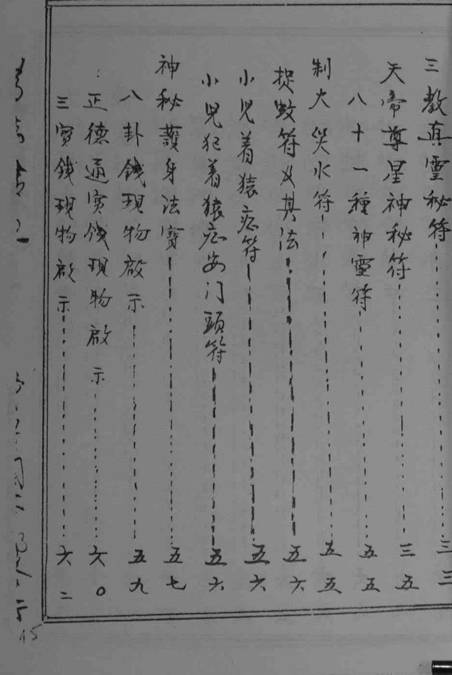 三教真靈秘符 三三
天帝尊星神秘符 三五
八十一種神靈符 五五
制火災水符 五五
捉蚊符及其法 五六
小児着猿庛符 五六
小児犯着猿庛安门頭符 五六
神秘護身法寳 五七
八卦錢現物啟示 五九
正德通寳錢現物啟示 六〇
三寳錢現物啟示 六二
15